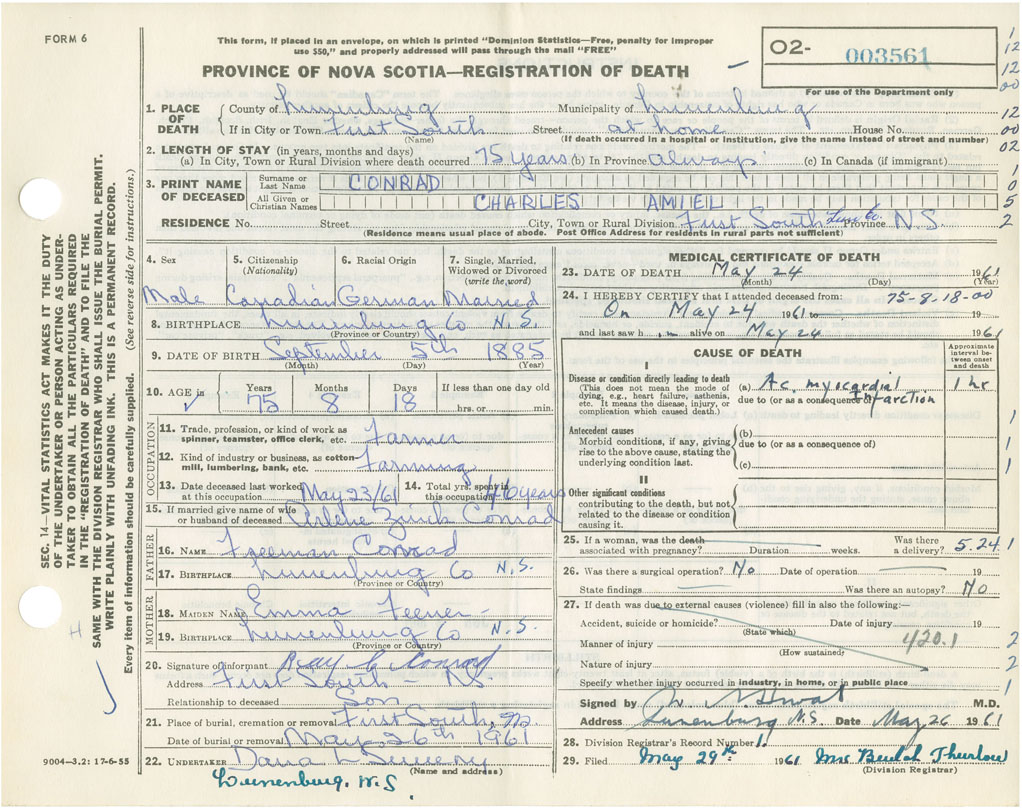 FORM 6
This form, if placed in an envelope, on which is printed "Dominion Statistics—Free, penalty for improper
use $50," and properly addressed will pass through the mail "FREE"
PROVINCE OF NOVA SCOTIA—REGISTRATION OF DEATH
02- 003561
For use of the Department only
1. PLACE OF DEATH
County of Lunenburg Municipality of Lunenburg
If in City or Town First South Street at home House No.
(Name) (If death occurred in a hospital or institution, give the name instead of street and number)
2. LENGTH OF STAY (in years, months and days)
(a) In City, Town or Rural Division where death occurred 75 years (b) In Province always (c) In Canada (if immigrant)
3. PRINT NAME OF DECEASED
Surname or Last Name CONRAD
All Given or Christian Names CHARLES AMIEL
RESIDENCE No. Street City, Town or Rural Division First South Lun. Co. Province N.S.
(Residence means usual place of abode. Post Office Address for residents in rural parts not sufficient)
4. Sex Male
5. Citizenship (Nationality) Canadian
6. Racial Origin German
7. Single, Married, Widowed or Divorced (write the word) Married
8. BIRTHPLACE Lunenburg Co N.S.
(Province or Country)
9. DATE OF BIRTH September 5th 1885
(Month) (Day) (Year)
10. AGE in Years 75 Months 8 Days 18 If less than one day old hrs. or min.
OCCUPATION
11. Trade, profession, or kind of work as spinner, teamster, office clerk, etc. Farmer
12. Kind of industry or business, as cotton-mill, lumbering, bank, etc. Farming
13. Date deceased last worked at this occupation May 23/61
14. Total yrs. spent in this occupation 46 years
15. If married give name of wife or husband of deceased Arlene Zinck Conrad
FATHER
16. NAME Freeman Conrad
17. BIRTHPLACE Lunenburg Co N.S.
(Province or Country)
MOTHER
18. MAIDEN NAME Emma Feener
19. BIRTHPLACE Lunenburg Co N.S.
(Province or Country)
20. Signature of informant Ray C Conrad
Address First South - NS
Relationship to deceased Son
21. Place of burial, cremation or removal First South, NS
Date of burial or removal May 26th 1961
22. UNDERTAKER Dana L Sweeny
(Name and address)
Lunenburg, N.S
9004—3.2: 17-6-55
MEDICAL CERTIFICATE OF DEATH
23. DATE OF DEATH May 24 1961
(Month) (Day) (Year)
24. I HEREBY CERTIFY that I attended deceased from: 75-8-18-00
On May 24 1961 to 19
and last saw h im alive on May 24 1961
CAUSE OF DEATH
Approximate interval between onset and death
I
Disease or condition directly leading to death
(This does not mean the mode of dying, e.g., heart failure, asthenia, etc. It means the disease, injury, or complication which caused death.)
(a) Ac myocardial infarction 1 hr
due to (or as a consequence of)
Antecedent causes
Morbid conditions, if any, giving rise to the above cause, stating the underlying condition last.
(b)
due to (or as a consequence of)
(c)
II
Other significant conditions
contributing to the death, but not related to the disease or condition causing it.
25. If a woman, was the death associated with pregnancy? Duration weeks. Was there a delivery? 5.24
26. Was there a surgical operation? No Date of operation 19
State findings Was there an autopsy? NO
27. If death was due to external causes (violence) fill in also the following:—
Accident, suicide or homicide? Date of injury 19
(State which)
Manner of injury 420.1
(How sustained)
Nature of injury
Specify whether injury occurred in industry, in home, or in public place
Signed by M.D.
Address Lunenburg N.S. Date May 26 1961
28. Division Registrar's Record Number 1.
29. Filed May 29th 1961 Mrs Beulah Thurlow
(Division Registrar)
SEC. 14—VITAL STATISTICS ACT MAKES IT THE DUTY
OF THE UNDERTAKER OR PERSON ACTING AS UNDER-
TAKER TO OBTAIN ALL THE PARTICULARS REQUIRED
IN THE "REGISTRATION OF DEATH" AND TO FILE THE
SAME WITH THE DIVISION REGISTRAR WHO SHALL ISSUE THE BURIAL PERMIT.
WRITE PLAINLY WITH UNFADING INK. THIS IS A PERMANENT RECORD.
Every item of information should be carefully supplied. (See reverse side for instructions.)
H
1
12
12
00
12
00
02
1
0
5
2
1
1
1
1
2
2
1